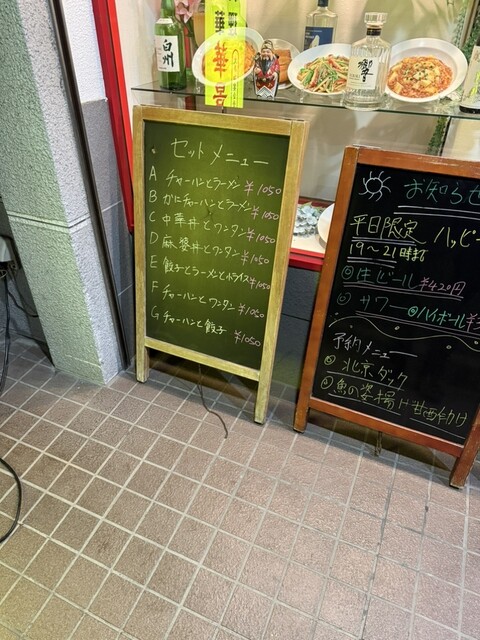 白州
華
華
景
響
セットメニュー
A チャーハンとラーメン ¥1050
B かにチャーハンとラーメン ¥1050
C 中華丼とワンタン ¥1050
D 麻婆丼とワンタン ¥1050
E 餃子とラーメンと小ライス ¥1050
F チャーハンと ワンタン ¥1050
G チャーハンと餃子 ¥1050
お知らせ
平日限定 ハッピー
19〜21時まで
生ビール ¥420円
サワー ハイボール ¥3
予約メニュー
北京ダック
魚の姿揚げ甘酢